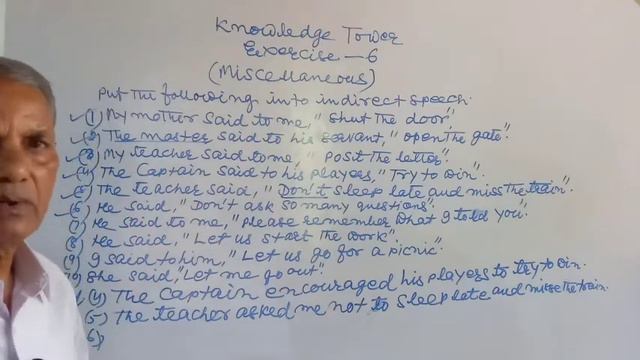 Knowledge Tower
Exercise - 6
(Miscellaneous)
Put the following into indirect speech.
(1) My mother said to me, "Shut the door".
(2) The master said to his servant, "open the gate".
(3) My teacher said to me, "Post the letter".
(4) The Captain said to his players, "Try to win".
(5) The teacher said, "Don't sleep late and miss the train".
(6) He said, "Don't ask so many questions".
(7) He said to me, "Please remember what I told you".
(8) He said, "Let us start the work".
(9) I said to him, "Let us go for a picnic".
She said, "Let me go out"
(4) The Captain encouraged his players to try to win.
(5) The teacher asked me not to sleep late and miss the train.
6)